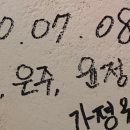 0.07.08
, 은주, 윤정
가정